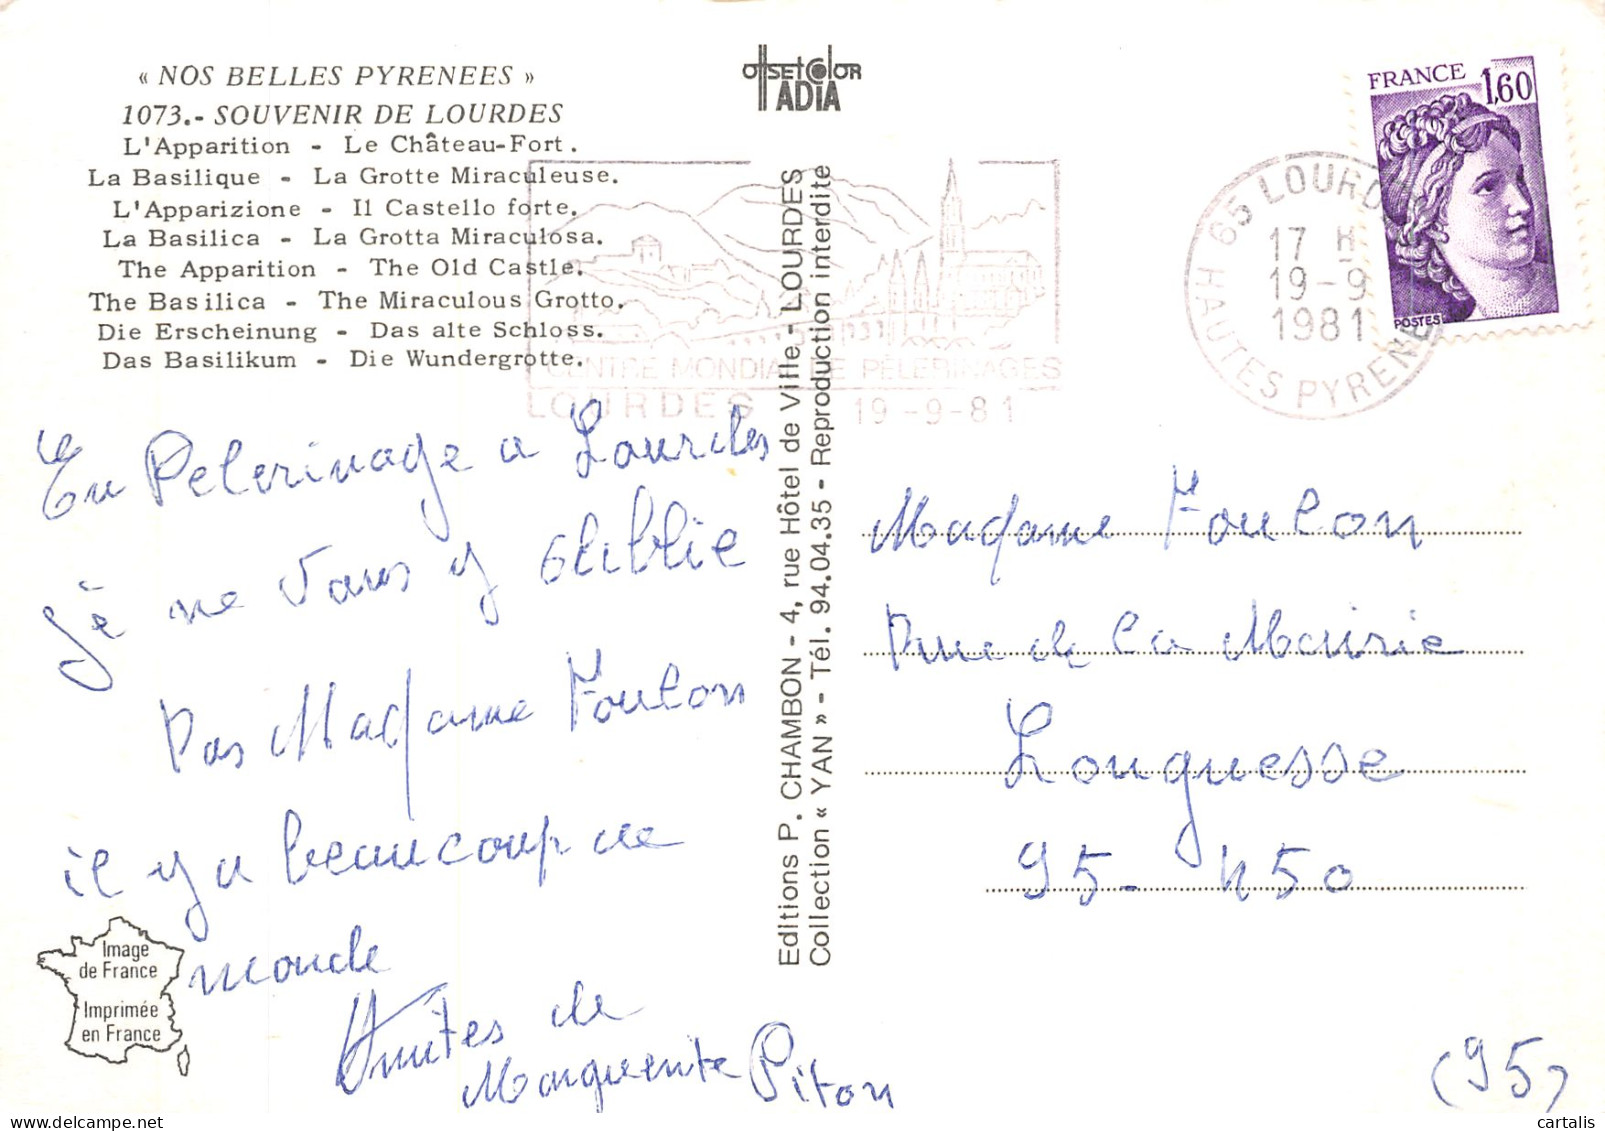 « NOS BELLES PYRENEES »
1073.- SOUVENIR DE LOURDES
L'Apparition - Le Château-Fort.
La Basilique - La Grotte Miraculeuse.
L'Apparizione - Il Castello forte.
La Basilica - La Grotta Miraculosa.
The Apparition - The Old Castle.
The Basilica - The Miraculous Grotto.
Die Erscheinung - Das alte Schloss.
Das Basilikum - Die Wundergrotte.
offset color
ADIA
CENTRE MONDIAL DE PÈLERINAGES
LOURDES 19-9-81
65 LOURDES
17 H
19-9
1981
HAUTES PYRENEES
FRANCE 1,60
POSTES
En Pelerinage a Lourdes
je ne vous y oublie
pas Madame Foulon
il y a beaucoup de
monde
Amitiés de
Marguerite Piton
Editions P. CHAMBON - 4, rue Hôtel de Ville - LOURDES
Collection « YAN » - Tél. 94.04.35 - Reproduction interdite
Madame Foulon
Rue de la Mairie
Longuesse
95- 450
Image
de France
Imprimée
en France
(95)
cartalis